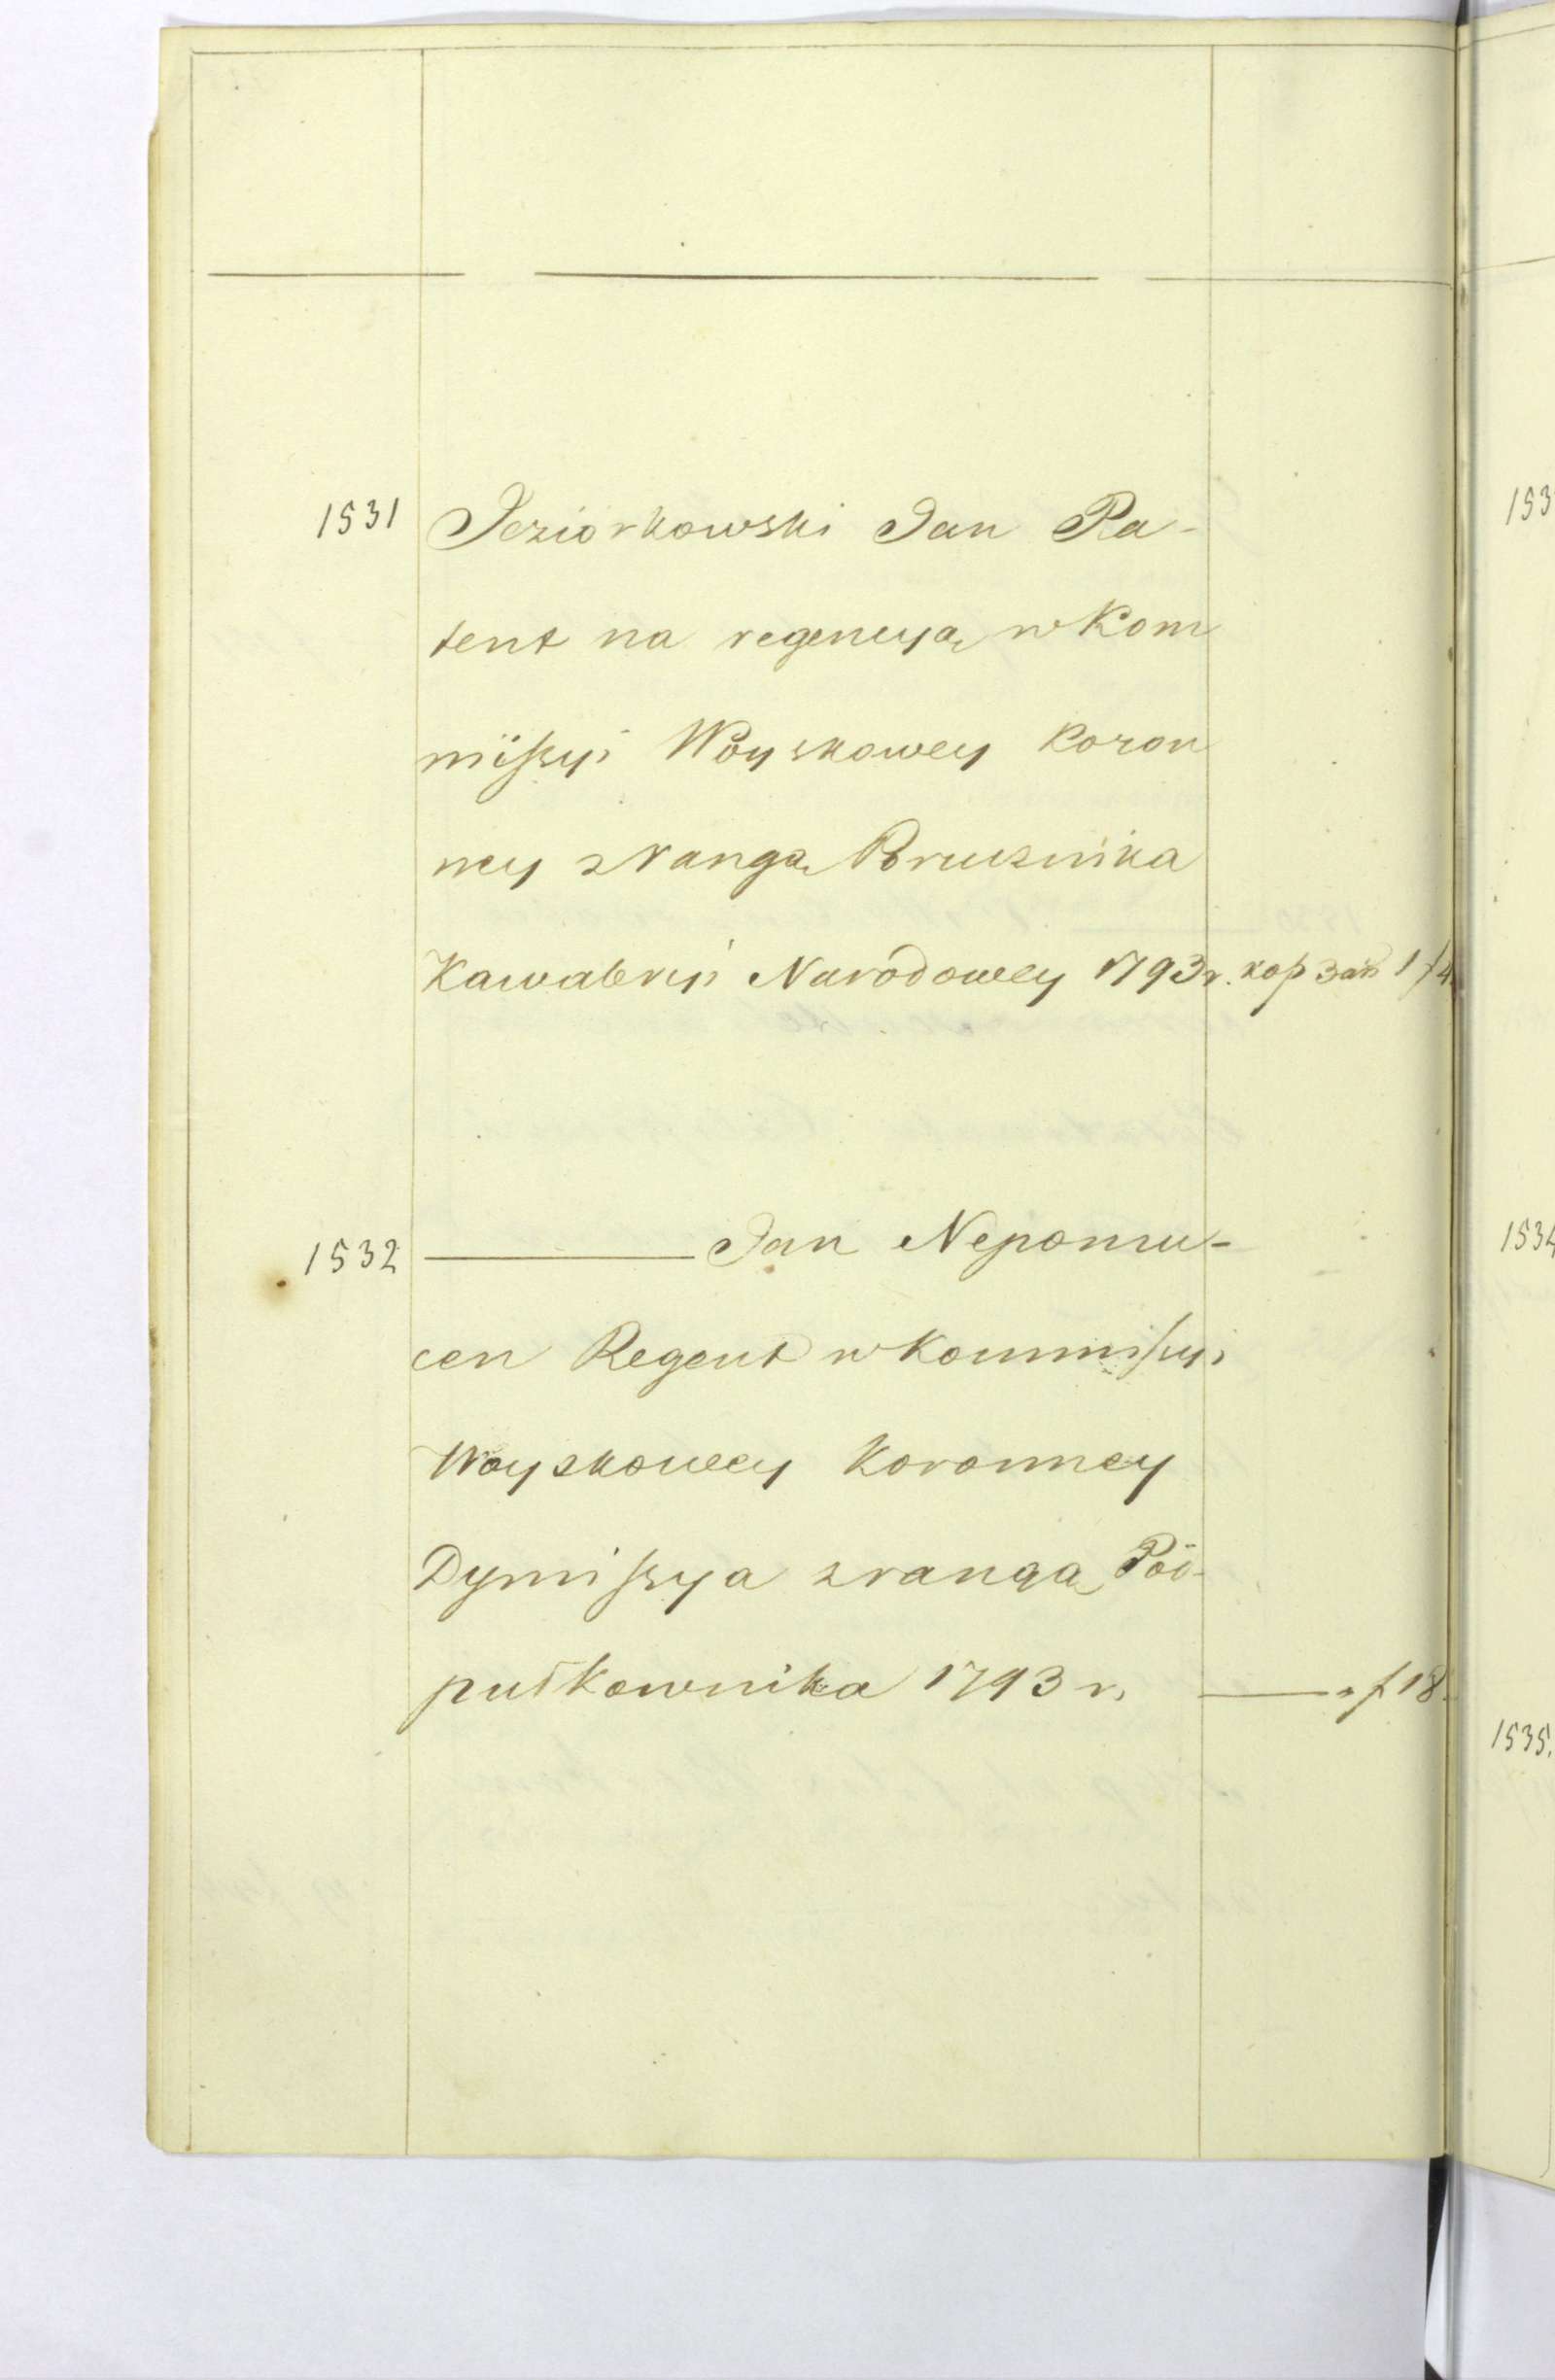 1531 Jeziorkowski Jan Pa-
tent na regencyą w Kom
missyi Woyskowey Koron
ney z Rangą Porucznika
Kawaleryi Narodowey 1793 r. kop 3 ark 1 f 4
1532 ——— Jan Nepomu-
cen Regent w Kommissyi
Woyskowey Koronney
Dymissya z rangą Pod-
pułkownika 1793 r. ——— " f 18.
153
1534
1535.